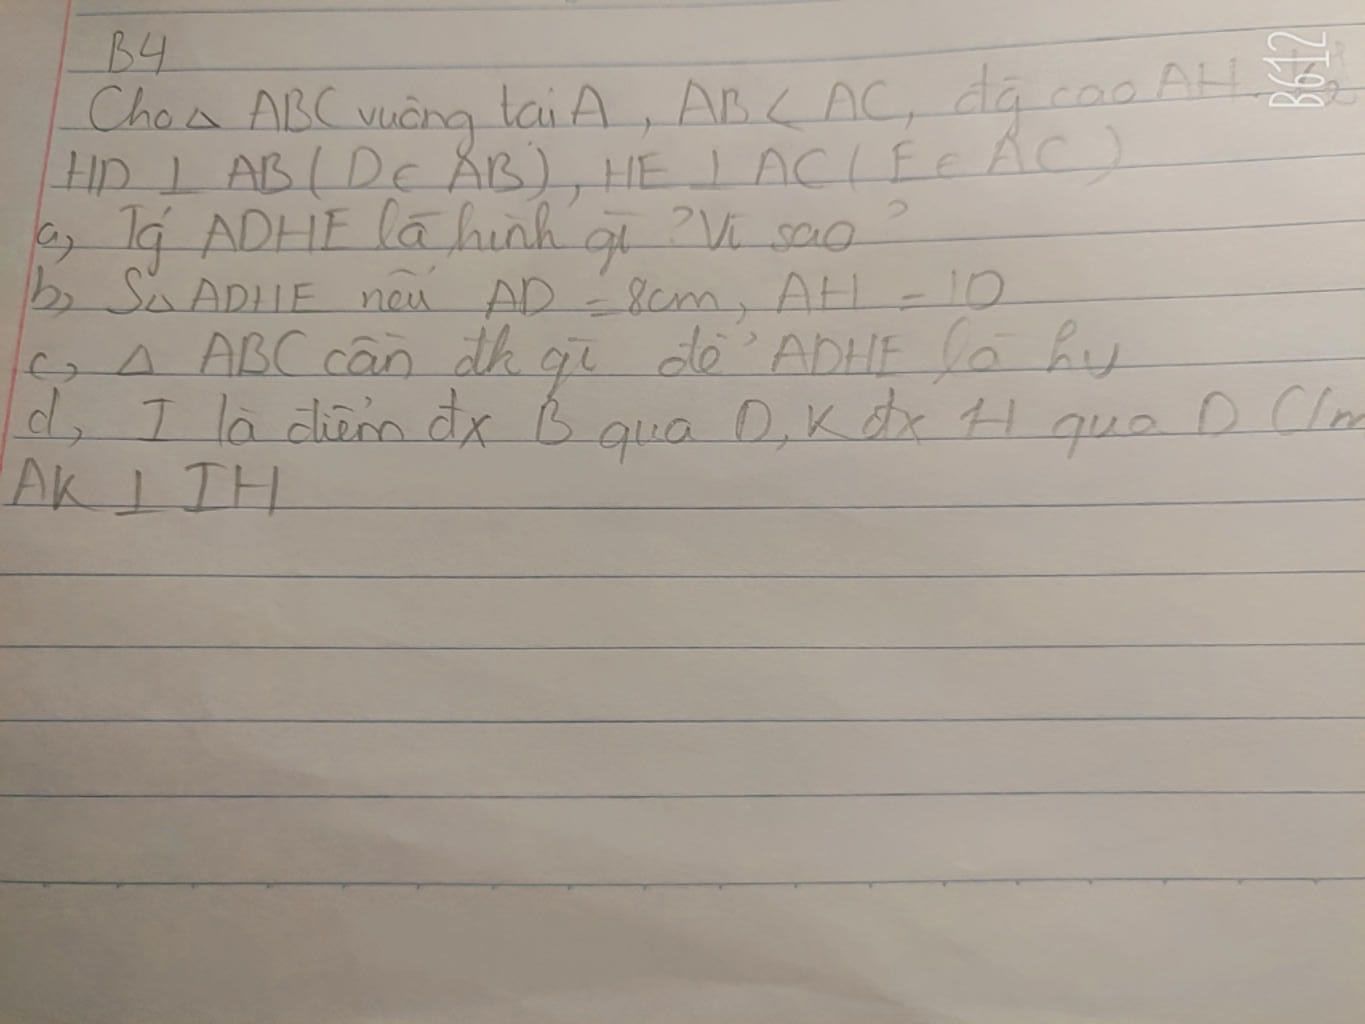 B4
Cho △ ABC vuông tại A, AB < AC, đg cao AH.
HD ⊥ AB (D ∈ AB), HE ⊥ AC (E ∈ AC)
a, Tg ADHE là hình gì? Vì sao?
b, S△ ADHE nếu AD = 8cm, AH = 10
c, △ ABC cần đk gì để ADHE là hv
d, I là điểm đx B qua D, K đx H qua D C/m
AK ⊥ IH
B612